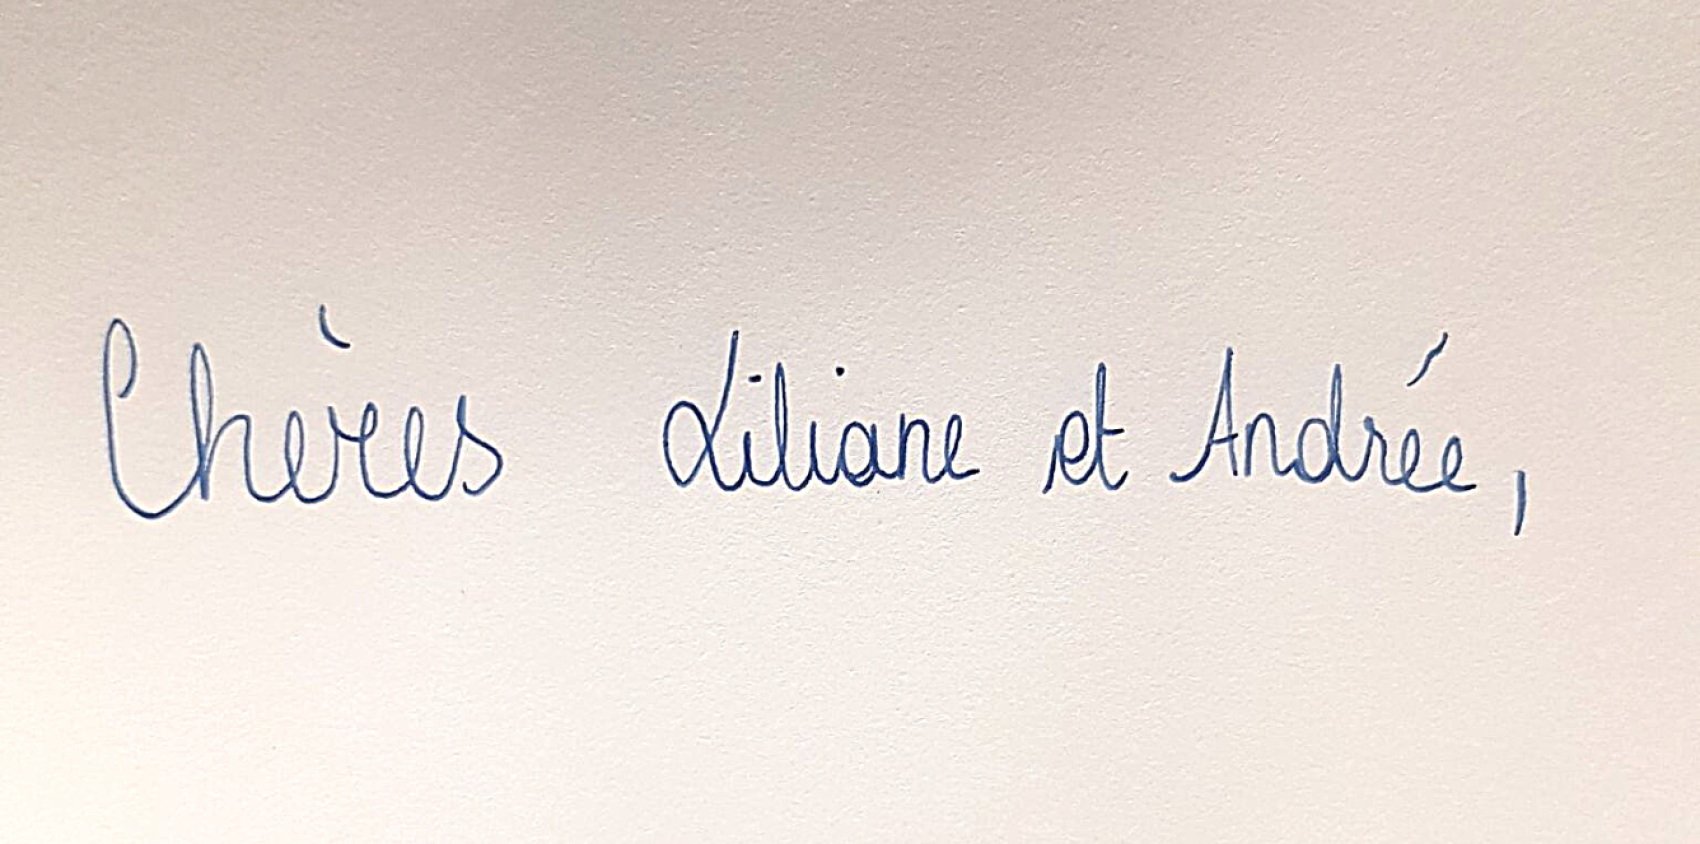 Chères Liliane et Andrée,